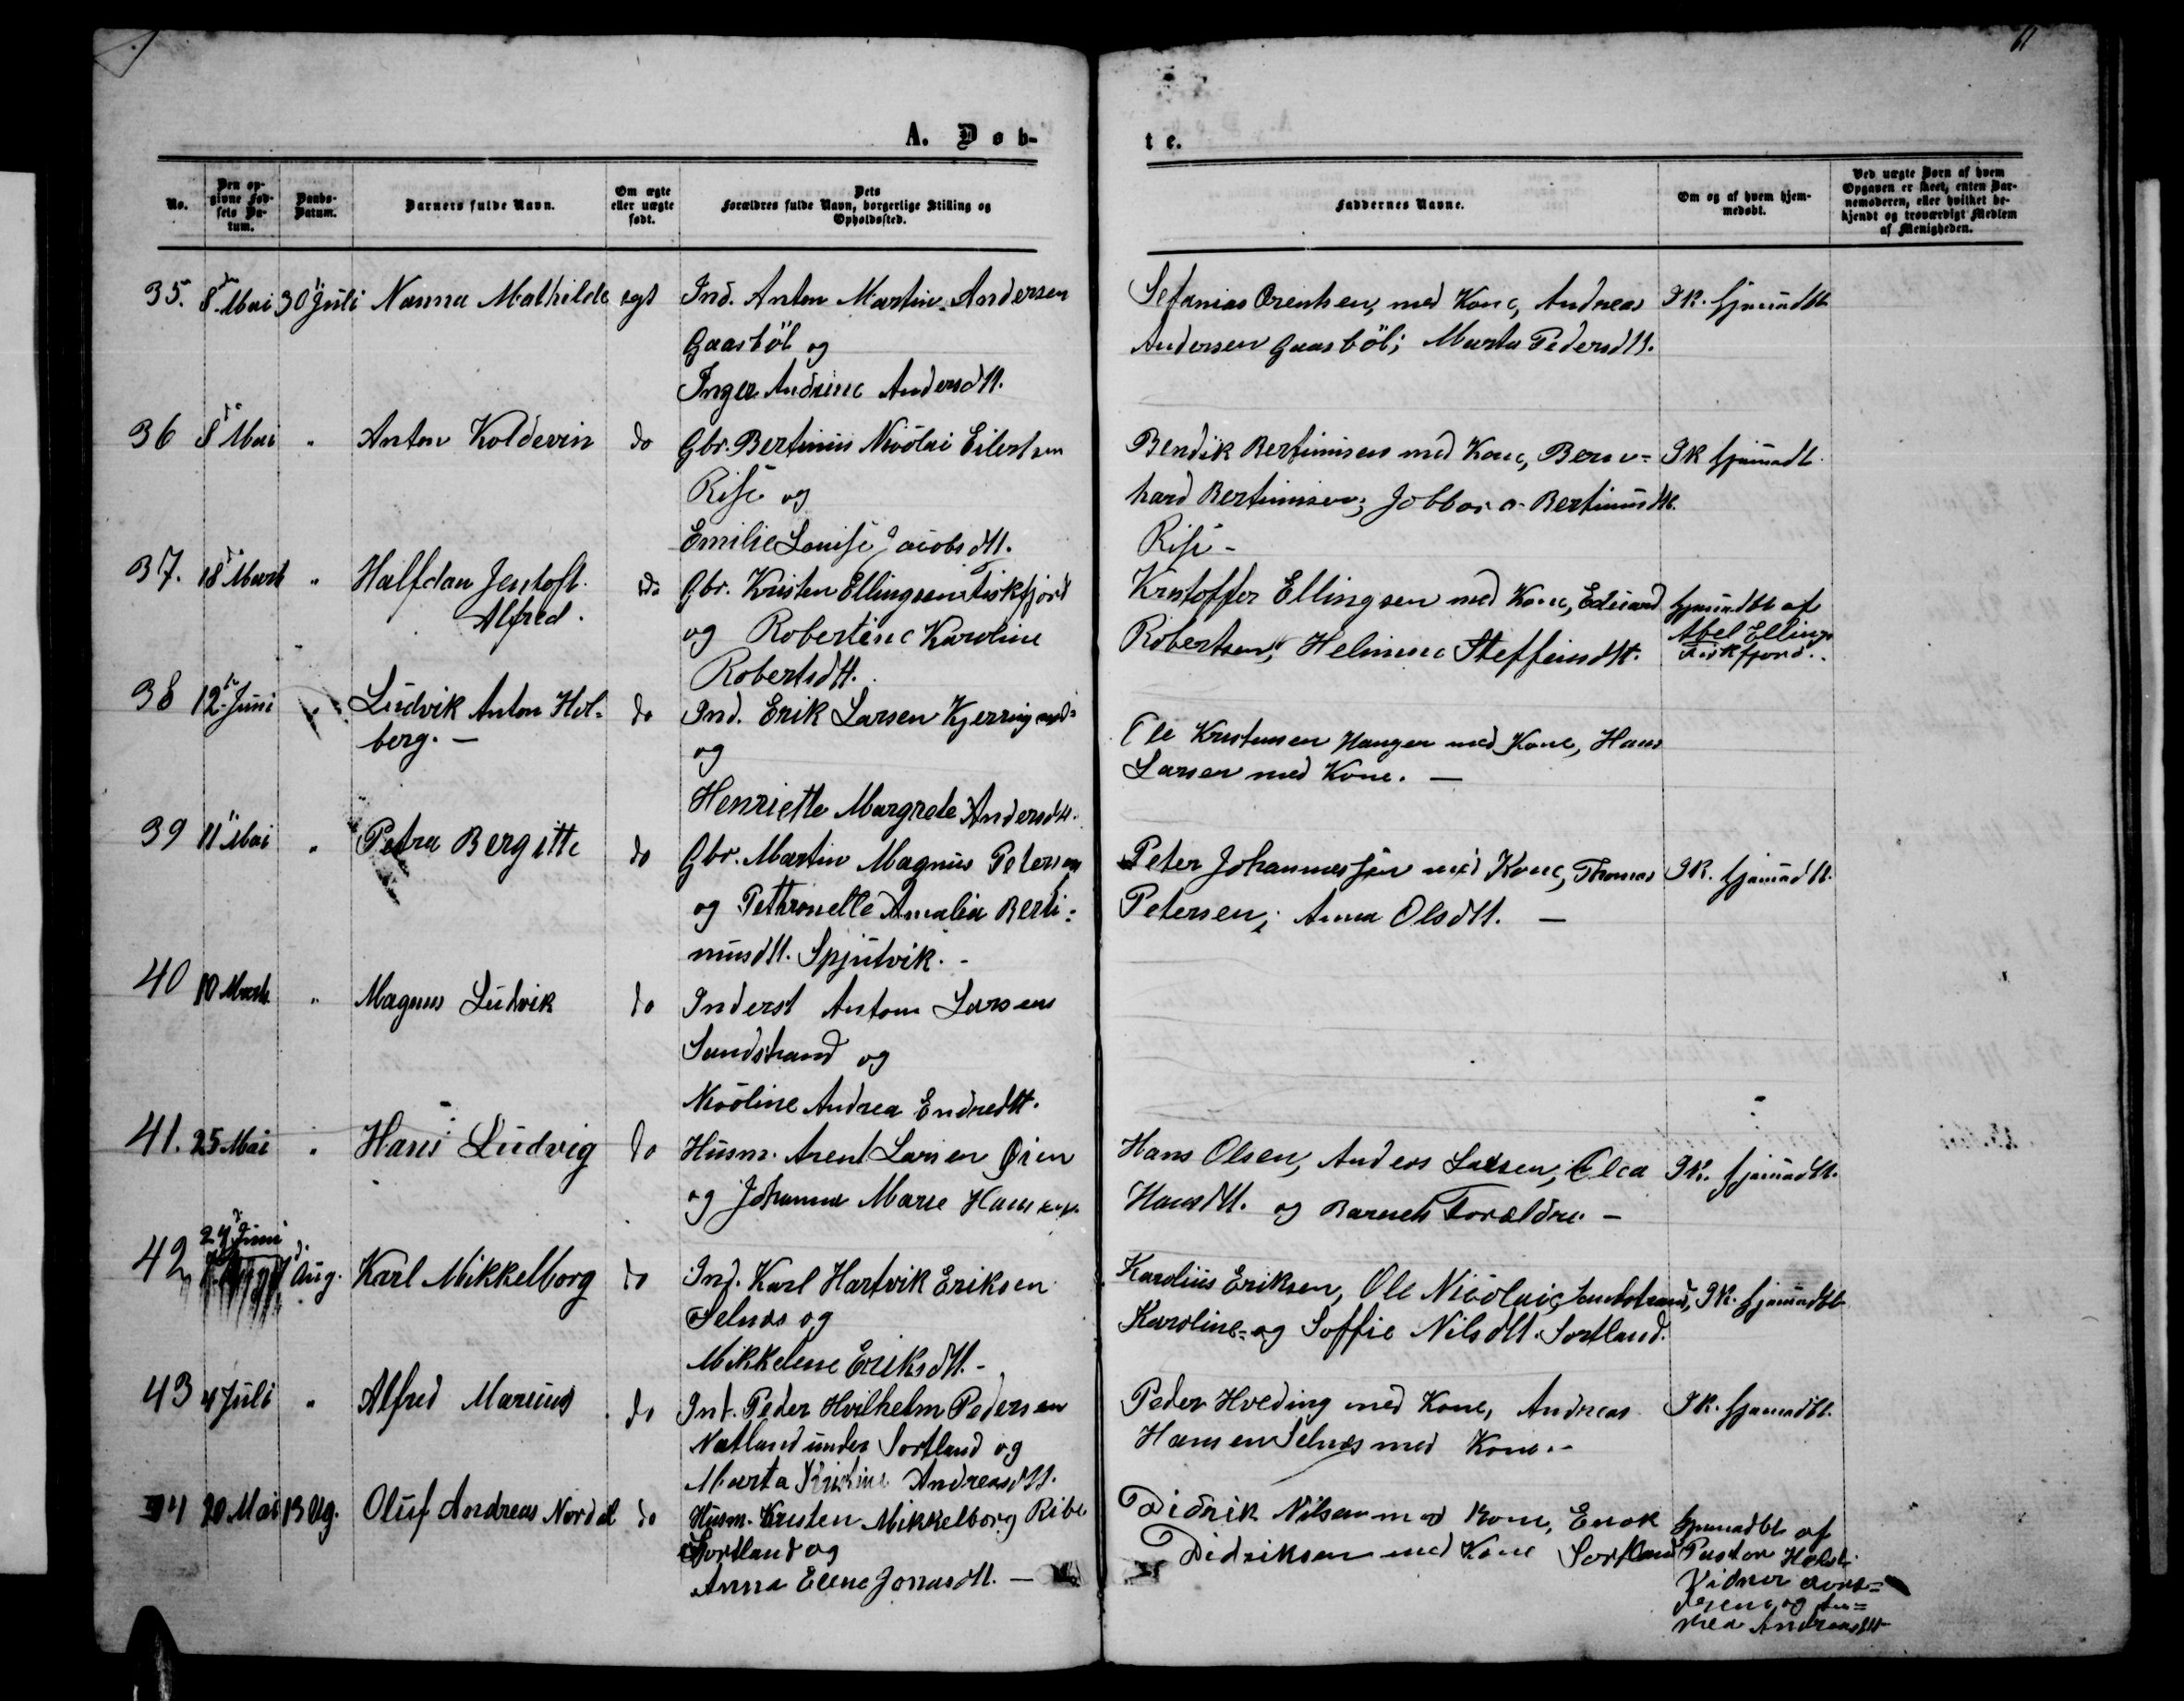 11
A. Døb-
te.
No.
Den opgivne Fødsels Datum.
Daabs-Datum.
Barnets fulde Navn.
Om ægte eller uægte født.
Dets Forældres fulde Navn, borgerlige Stilling og Opholdssted.
Faddernes Navne.
Om og af hvem hjemmedøbt.
Ved uægte Børn af hvem Opgaven er skeet, enten Barnemoderen, eller hvilket bekjendt og troværdigt Medlem af Menigheden.
35. 8de Mai 30 Juli Nanna Mathilde egt Ind. Anton Martin Andersen
Gaasböl og
Inger Andrine Andersdtt.
Sefanias Arentsen, med Kone, Andreas
Andersen Gaasböl; Marta Pedersdtt.
IK. hjemmedbt
36 8de Mai " Anton Koldevin do Gbr. Bertinius Nicolai Eilertsen
Rise og
Emilie Louise Jacobsdtt.
Bendik Bertiniusen med Kone, Bern-
hard Bertiniusen; Bertiniusdtt.
Rise -
IK hjemmedbt
37. 18de Marts " Halfdan Jentoft
Alfred.
do Gbr. Kristen Ellingsen Fiskfjord
og Robertine Karoline
Robertsdtt.
Kristoffer Ellingsen med Kone, Edvard
Robertsen, Helmine Steffensdtt.
hjemmedbt af
Abel Ellings
Fiskfjord.
38 12te Juni " Ludvik Anton Hol-
berg. -
do Ind. Erik Larsen Kjerringnes
og
Henriette Margrete Andersdtt.
Ole Kristensen Hanger med Kone, Hans
Larsen med Kone. -
39 11te Mai " Petra Bergitte do Gbr. Martin Magnus Petersen
og Pethronelle Amalia Berti-
niusdtt. Spjutvik. -
Peter Johannessen med Kone, Thomas
Petersen; Anna Olsdtt. -
IK. hjemmedbt.
40 10 Marts " Magnus Ludvik do Inderst Anton Larsen
Sandstrand og
Nicoline Andrea Endredtt.
41. 25 Mai " Hans Ludvig do Husm. Arent Larsen Öien
og Johanna Marie Hansen
Hans Olsen, Anders Larsen; Olea
Hansdtt. og Barnets Forældre. -
IK. hjemmedbt.
42 29de Juni
Aug. Karl Mikkelborg do Ind. Karl Hartvik Eriksen
Selnes og
Mikkeline Eriksdtt. -
Karolius Eriksen, Ole Nicolais Sandstrand,
Karoline- og Soffie Nilsdtt. Sortland.
IK. hjemmedbt
43 4 Juli " Alfred Marcius do Ind. Peder Hvilhelm Pedersen
Natland under Sortland og
Marta Kristine Andreasdtt.
Peder Hveding med Kone, Andreas
Hansen Selnes med Kone. -
IK. hjemmedbt.
44 20 Mai 13 Ug. Oluf Andreas Nordal do Husm. Kristen Mikkelborg Ribe
Sortland og
Anna Elene Jonasdtt. -
Didrik Nilsen med Kone, Enok
Didriksen med Kone Sortland
hjemmedbt af
Pastor Holst.
Vidner
og An-
drea Andreasdtt